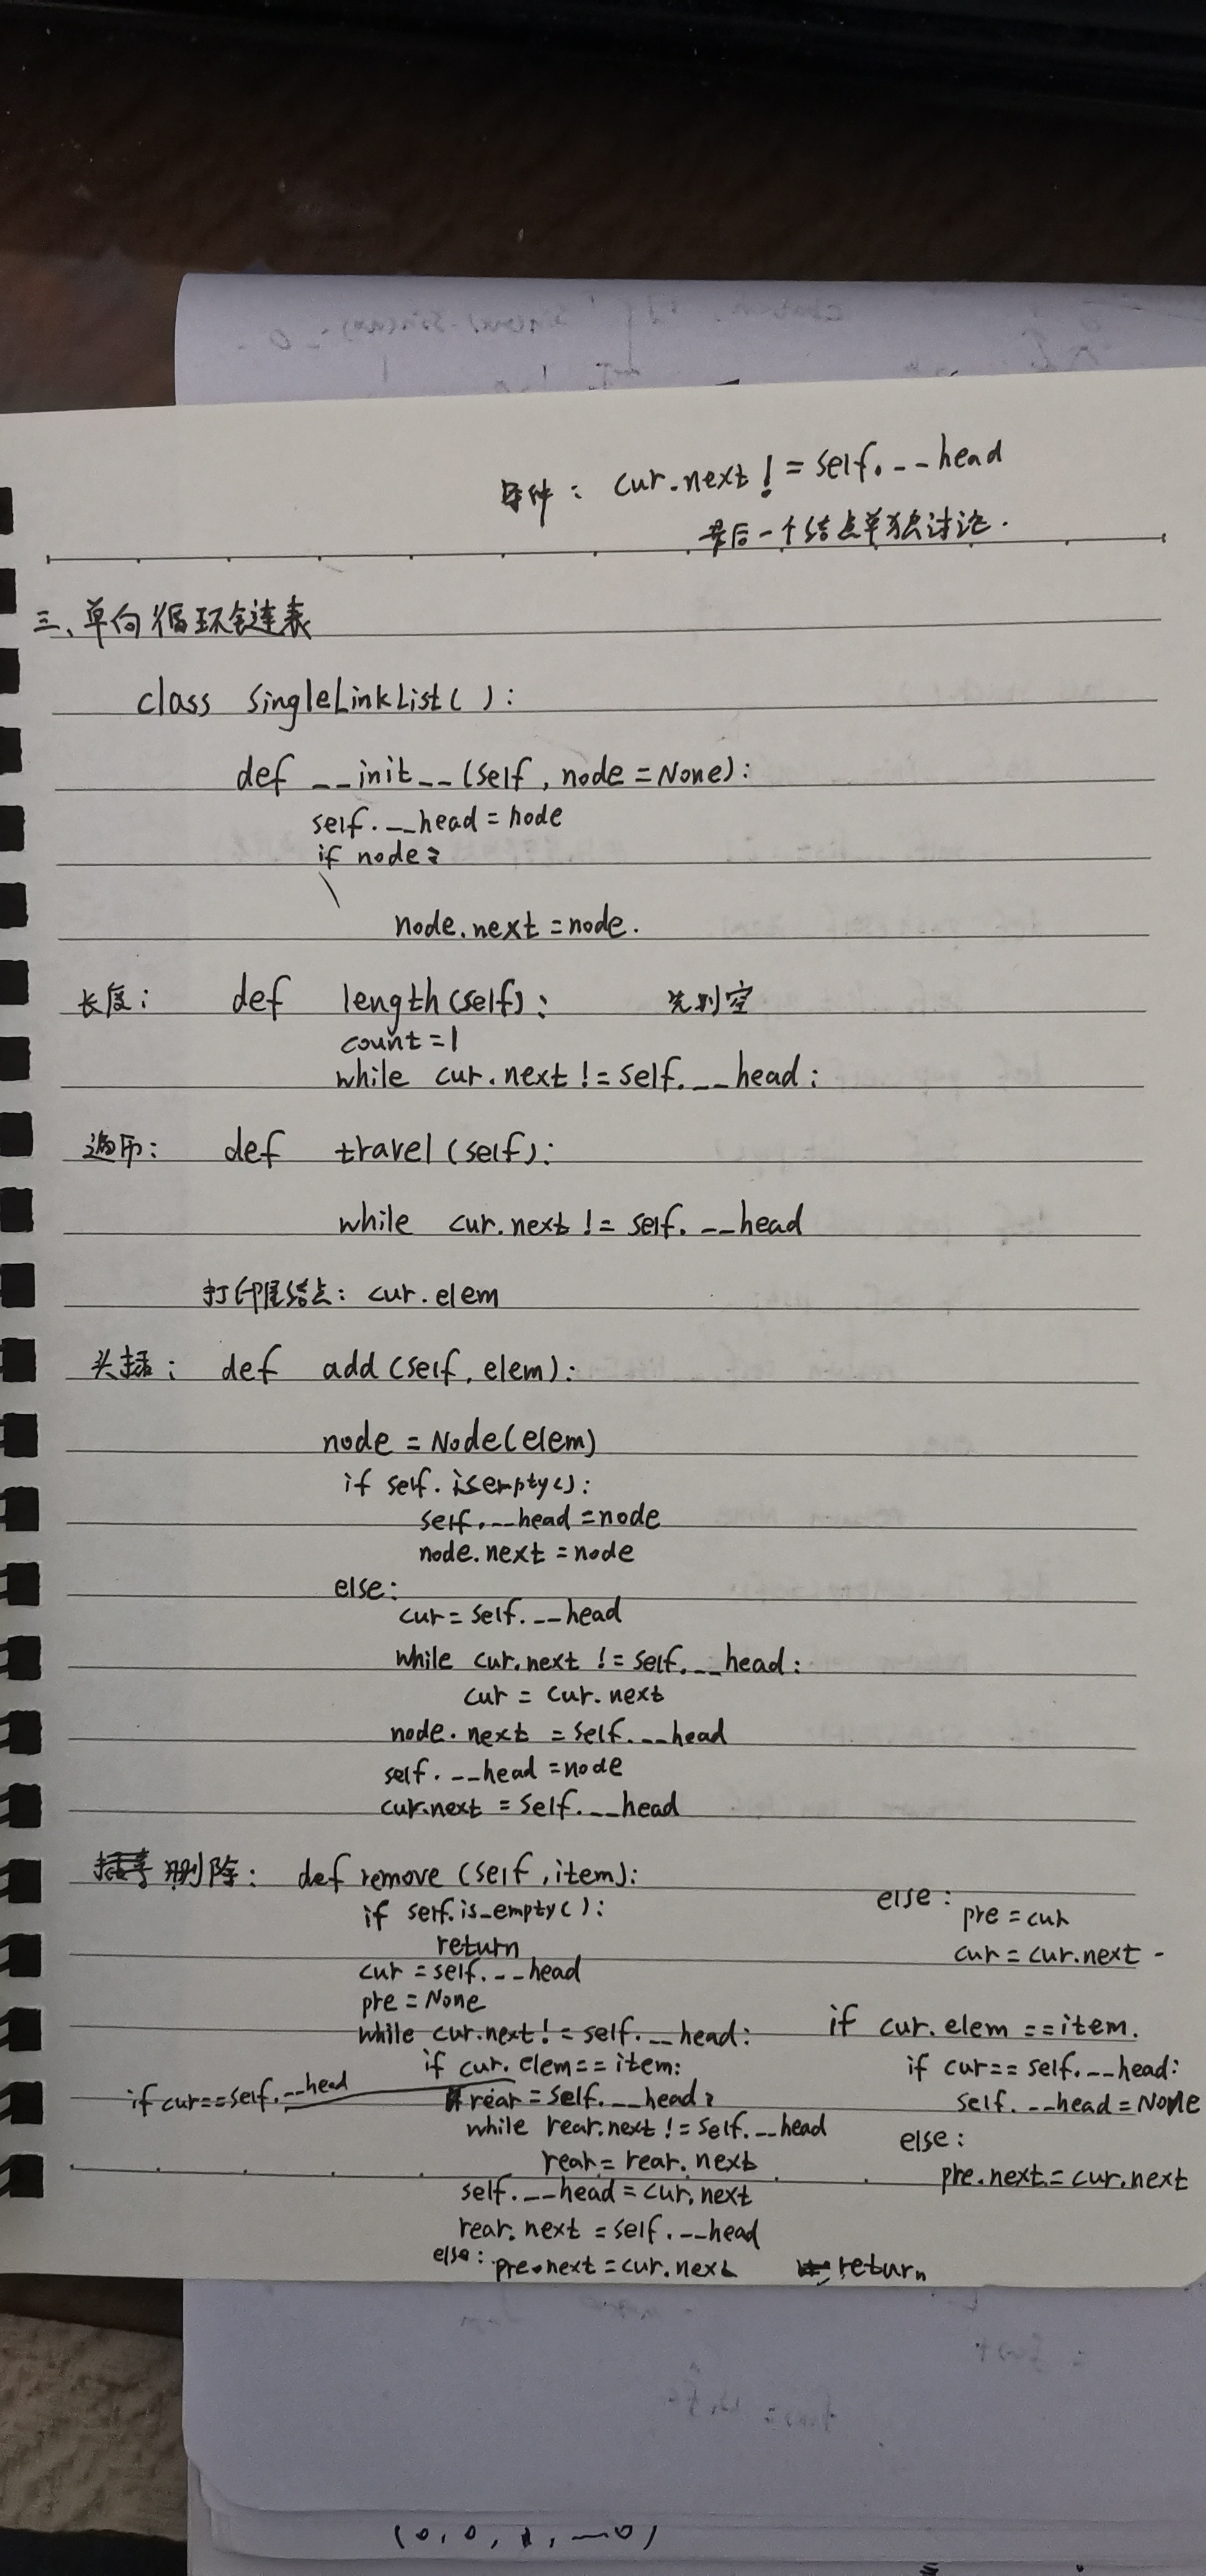 条件： cur.next != self.__head
最后一个结点单独讨论.
三、单向循环链表
class SingleLinkList( ):
def __init__(self, node=None):
self.__head=node
if node:
node.next=node.
长度： def length(self): 先判空
count=1
while cur.next != self.__head:
遍历： def travel(self):
while cur.next != self.__head
打印尾结点： cur.elem
头插： def add(self, elem):
node = Node(elem)
if self.isempty():
self.__head=node
node.next=node
else:
cur=self.__head
while cur.next != self.__head:
cur = cur.next
node.next = self.__head
self.__head=node
cur.next = self.__head
删除： def remove (self, item):
if self.is_empty():
return
cur=self.__head
pre=None
while cur.next!=self.__head:
if cur.elem==item:
if cur==self.__head
rear=self.__head:
while rear.next!=self.__head
rear=rear.next
self.__head=cur.next
rear.next=self.__head
else: pre.next=cur.next return
else: pre=cur
cur=cur.next
if cur.elem==item.
if cur==self.__head:
self.__head=None
else:
pre.next=cur.next